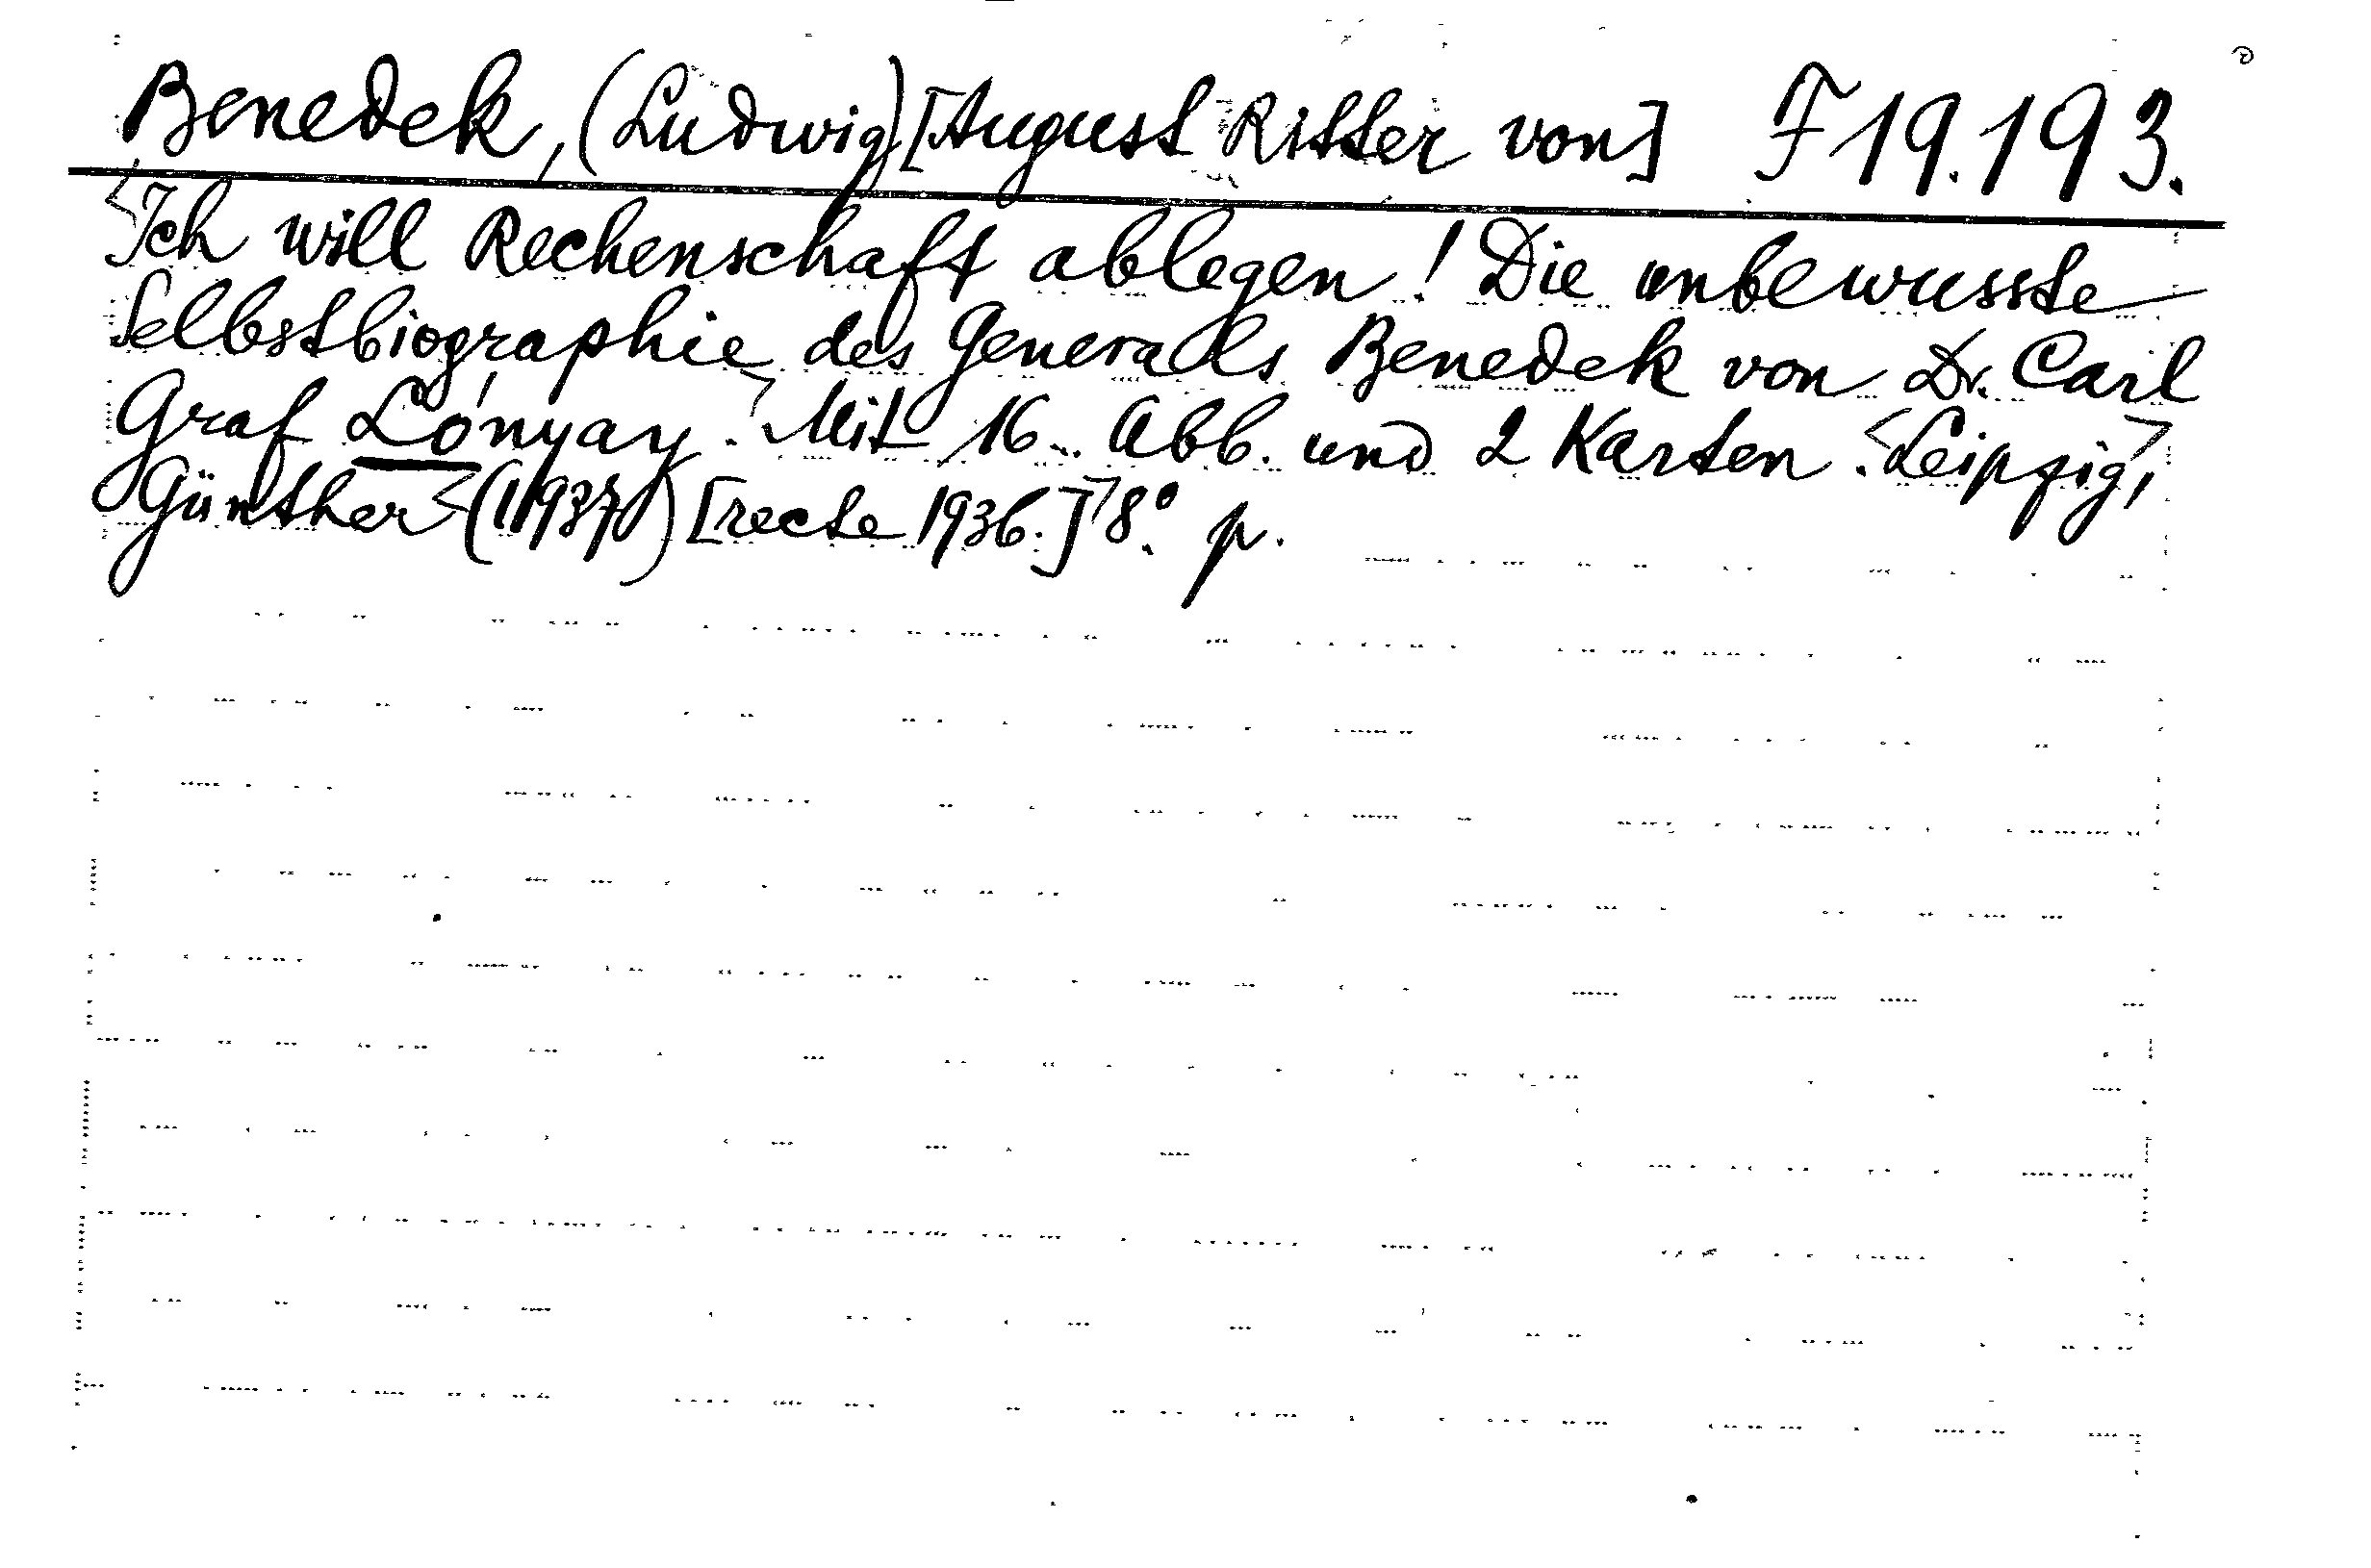 Benedek, (Ludwig) [August Ritter von] F 19.193.
<Ich will Rechenschaft ablegen! Die unbewusste
Selbstbiographie des Generals Benedek von Dr. Carl
Graf Lónyay.> Mit 16 Abb. und 2 Karten. <Leipzig>,
Günther <(1937) [recte 1936.]> 8°. p.